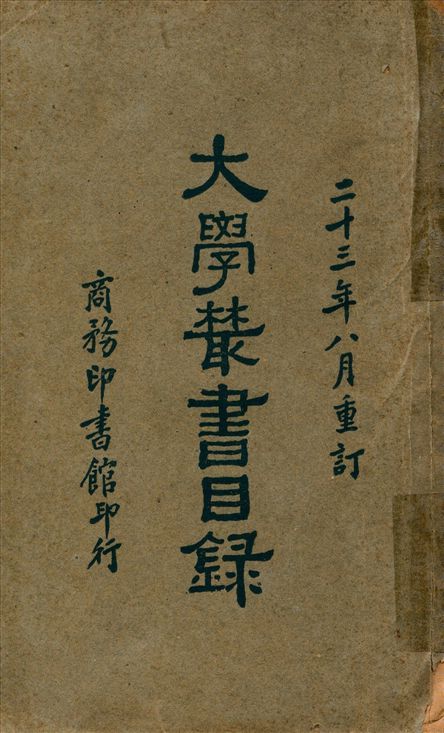 二十三年八月重訂
大學叢書目録
商務印書館印行